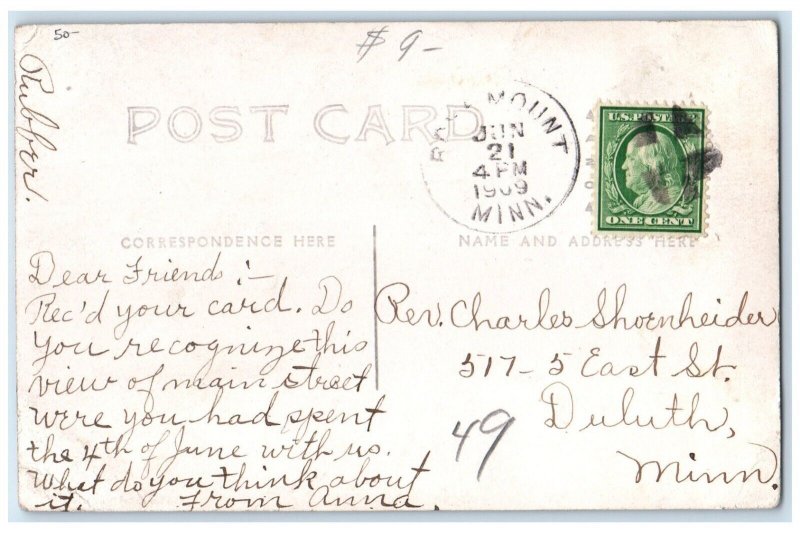 50-
$ 9-
Rubber.
POST CARD
MOUNT
JUN
21
4 PM
1909
MINN.
U.S. POSTAGE
ONE CENT
CORRESPONDENCE HERE
NAME AND ADDRESS HERE
Dear Friends:-
Rec'd your card. Do
you recognize this
view of main street
were you had spent
the 4th of June with us.
What do you think about
it. From Anna.
Rev. Charles Shoenheider
517-5 East St.
Duluth,
Minn.
49